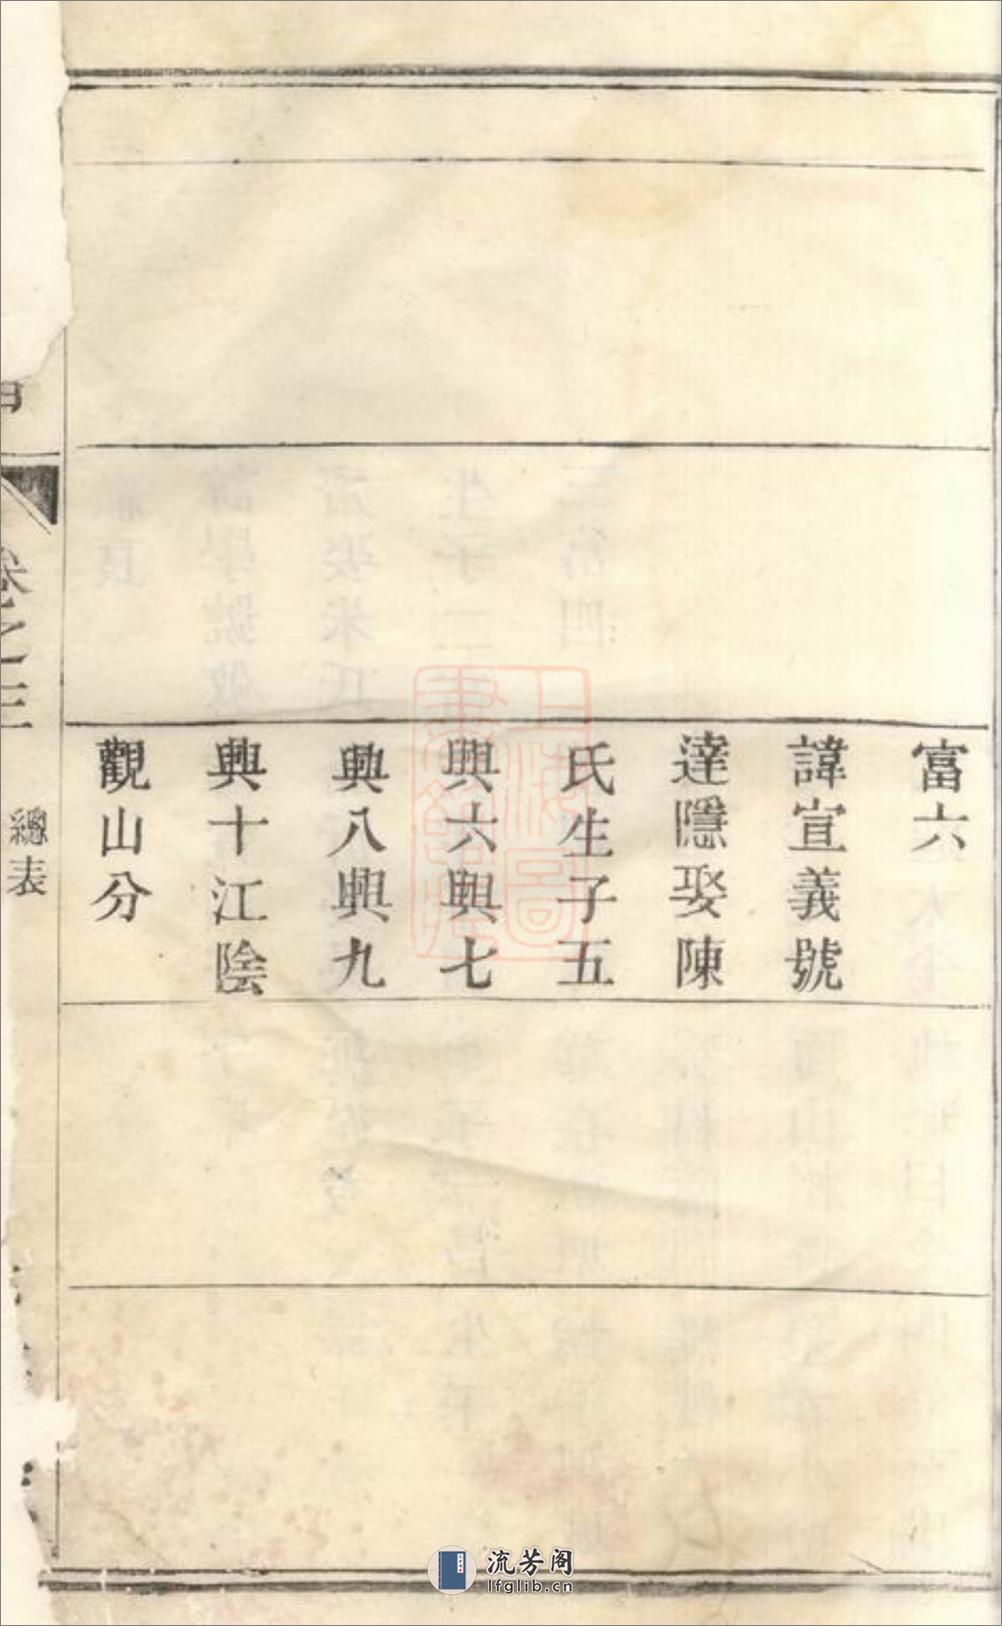 富六
諱宣義號
達隱娶陳
氏生子五
興六興七
興八興九
興十江陰
觀山分
卷之三
總表
流芳阁
lfglib.cn